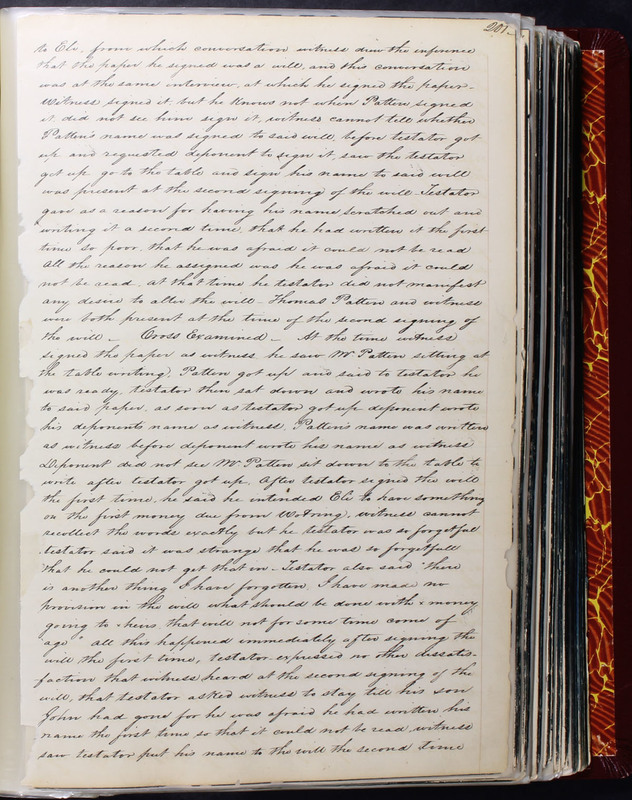 201.
to Eli, from which conversation witness drew the inference
that the paper he signed was a will, and this conversation
was at the same interview, at which he signed the paper.
Witness signed it, but he knows not when Patten signed
it did not see him sign it, witness cannot tell whether
Patten's name was signed to said will before testator got
up and requested deponent to sign it, saw the testator
get up go to the table and sign his name to said will
was present at the second signing of the will. Testator
gave as a reason for having his name scratched out and
writing it a second time, that he had written it the first
time so poor that he was afraid it could not be read
all the reason he assigned was he was afraid it could
not be read. at that time he testator did not manifest
any desire to alter the will. Thomas Patten and witness
were both present at the time of the second signing of
the will – Cross Examined – At the time witness
signed the paper as witness he saw Mr Patten sitting at
the table writing, Patten got up and said to testator he
was ready, testator then sat down and wrote his name
to said paper, as soon as testator got up deponent wrote
his deponents name as witness, Patten's name was written
as witness before deponent wrote his name as witness
Deponent did not see Mr Patten sit down to the table to
write after testator got up. After testator signed the will
the first time, he said he intended Eli to have something
on the first money due from Wotring, witness cannot
recollect the words exactly but he testator was so forgetful
testator said it was strange that he was so forgetfull
that he could not get that in. Testator also said "there
is another thing I have forgotten, I have made no
provision in the will what should be done with money
going to heirs that will not for some time come of
age" all this happened immediately after signing the
will the first time, testator expressed no other dissatis-
faction that witness heard at the second signing of the
will, that testator asked witness to stay till his son
John had gone for he was afraid he had written his
name the first time so that it could not be read, witness
saw testator put his name to the will the second time